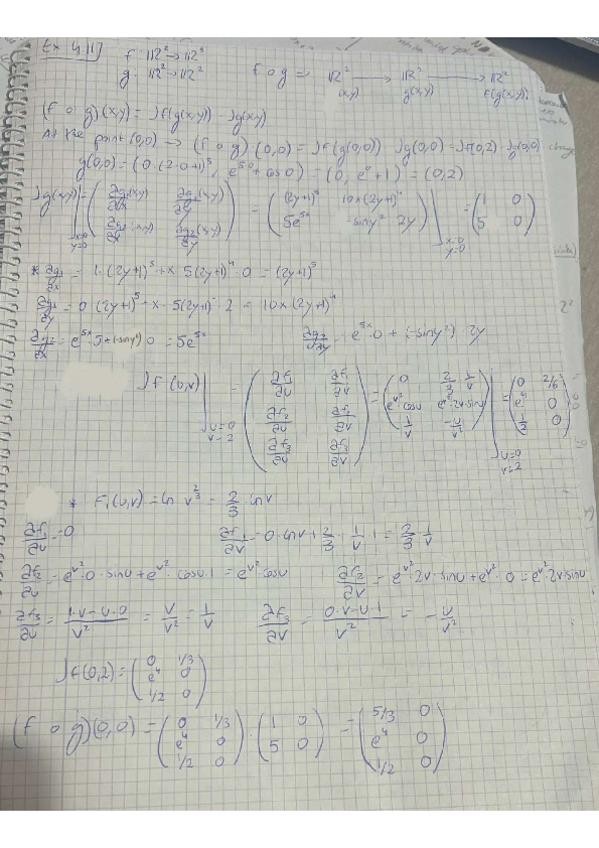 Ex 4.11)
f: ℝ² → ℝ³
g: ℝ² → ℝ²
f ∘ g = ℝ² → ℝ² → ℝ³
(x,y) g(x,y) f(g(x,y))
(f ∘ g)(x,y) = Jf(g(x,y)) · Jg(x,y)
At the point (0,0) → (f ∘ g)(0,0) = Jf(g(0,0)) · Jg(0,0) = Jf(0,2) · Jg(0,0)
g(0,0) = (0·(2·0+1)⁵, e^{5·0} + cos0) = (0, e⁰+1) = (0,2)
Jg(x,y)|_{x=0, y=0} = (∂g₁/∂x (x,y) ∂g₁/∂y (x,y) ; ∂g₂/∂x (x,y) ∂g₂/∂y (x,y)) = ((2y+1)⁵ 10x(2y+1)⁴ ; 5e^{5x} -siny²·2y)|_{x=0, y=0} = (1 0 ; 5 0)
* ∂g₁/∂x = 1·(2y+1)⁵ + x·5(2y+1)⁴·0 = (2y+1)⁵
∂g₁/∂y = 0·(2y+1)⁵ + x·5(2y+1)⁴·2 = 10x(2y+1)⁴
∂g₂/∂x = e^{5x}·5 + (-siny²)·0 = 5e^{5x} ∂g₂/∂y = e^{5x}·0 + (-siny²)·2y
Jf(u,v)|_{u=0, v=2} = (∂f₁/∂u ∂f₁/∂v ; ∂f₂/∂u ∂f₂/∂v ; ∂f₃/∂u ∂f₃/∂v) = (0 2/3·1/v ; e^{v²}cosu e^{v²}·2v·sinu ; 1/v -u/v²)|_{u=0, v=2} = (0 2/6 ; e⁴ 0 ; 1/2 0)
* f₁(u,v) = ln v^{2/3} = 2/3 lnv
∂f₁/∂u = 0 ∂f₁/∂v = 0·lnv + 2/3·1/v·1 = 2/3·1/v
∂f₂/∂u = e^{v²}·0·sinu + e^{v²}·cosu·1 = e^{v²}cosu ∂f₂/∂v = e^{v²}·2v·sinu + e^{v²}·0 = e^{v²}2v sinu
∂f₃/∂u = (1·v-u·0)/v² = v/v² = 1/v ∂f₃/∂v = (0·v-u·1)/v² = -u/v²
Jf(0,2) = (0 1/3 ; e⁴ 0 ; 1/2 0)
(f ∘ g)(0,0) = (0 1/3 ; e⁴ 0 ; 1/2 0) · (1 0 ; 5 0) = (5/3 0 ; e⁴ 0 ; 1/2 0)